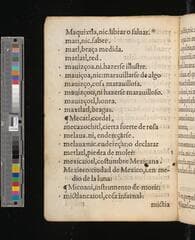 Maquixtia,nic.librar o saluar.
mati,nic.saber.
matl,braça medida.
matlatl,red.
mauiço,ni.hazerse illustre.
mauiçoa,nic.marauillarse de algo
mauiçoti,cosa marauillosa.
mauiçotia,nin.hazerse marauilloso.
mauiçotl,honra.
maxtlatl,bragas.
¶ Mecatl,cordel.
mecaxochitl,cierta fuerte de rosa
melaua,ni,endereçarse.
melaua,nic.endereçar,o declarar
metlatl,piedra de moler.
mexicaiotl,costumbre Mexicana.
Mexico:ciudad de Mexico, en medio de la luna.
¶ Micoani,instrumento de morir.
mictlancaiotl,cosa infernal.
mictia